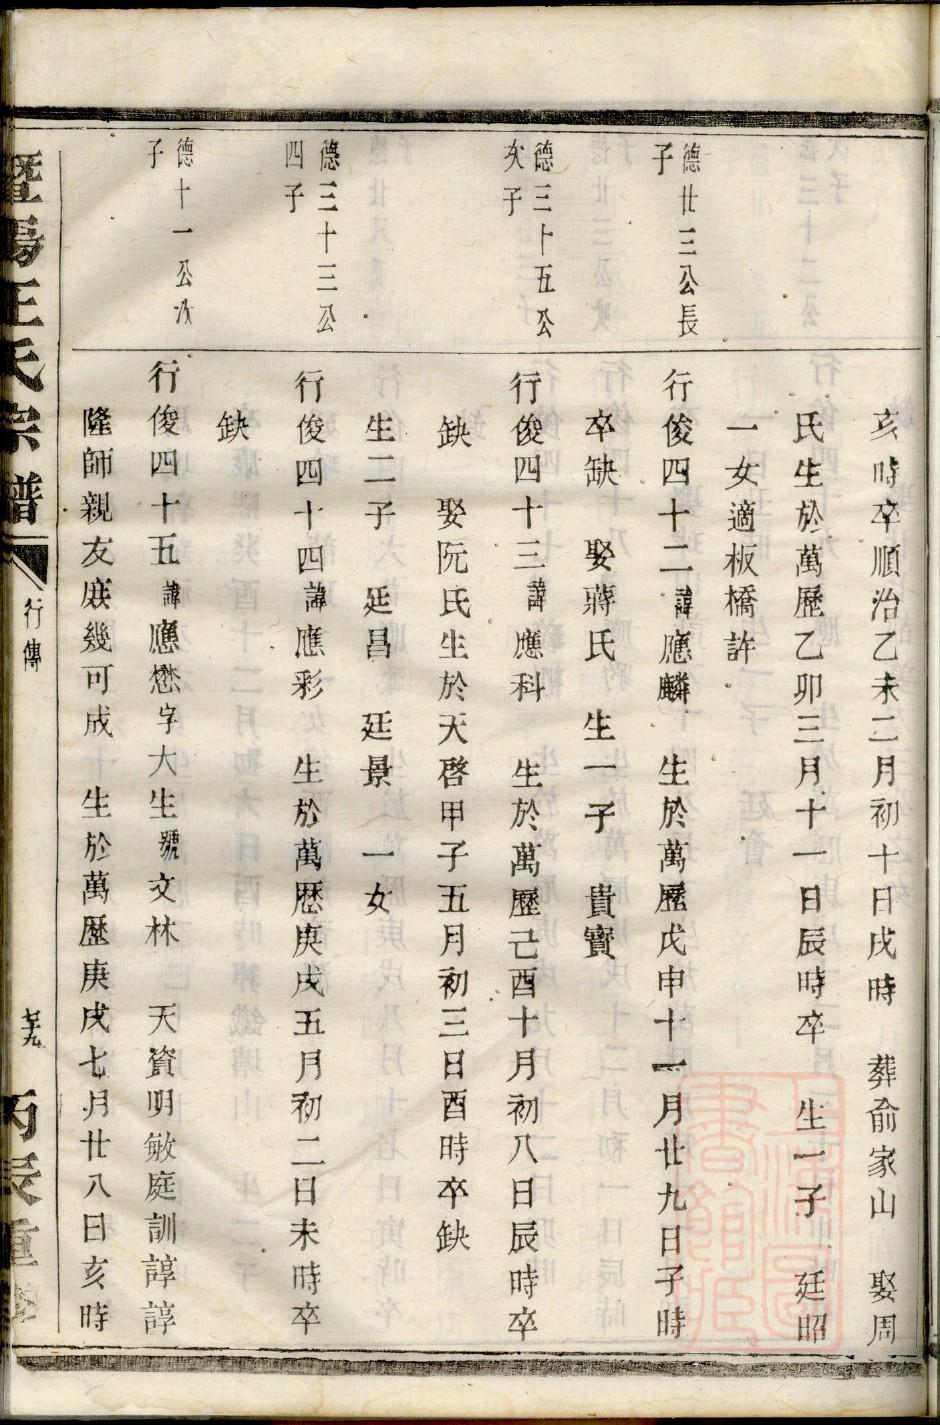 亥時卒順治乙未二月初十日戌時 葬俞家山 娶周
氏生於萬歷乙卯三月十一日辰時卒 生一子 廷昭
一女適板橋許
德廿三公長
子
行俊四十二諱應麟 生於萬歷戊申十一月廿九日子時
卒缺 娶蔣氏 生一子 貴寶
德三十五公
次子
行俊四十三諱應科 生於萬歷己酉十月初八日辰時卒
缺 娶阮氏生於天啓甲子五月初三日酉時卒缺
生二子 廷昌 廷景 一女
德三十三公
四子
行俊四十四諱應彩 生於萬歷庚戌五月初二日未時卒
缺
德十一公次
子
行俊四十五諱應懋字大生號文林 天資明敏庭訓諄諄
隆師親友庶幾可成 生於萬歷庚戌七月廿八日亥時
暨陽王氏宗譜
行傳
丙辰重